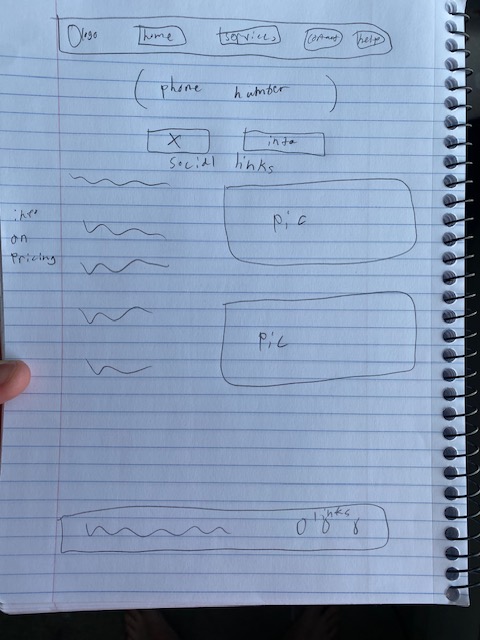 logo home services contact help
(phone number)
X insta
social links
info
on
pricing
pic
pic
links